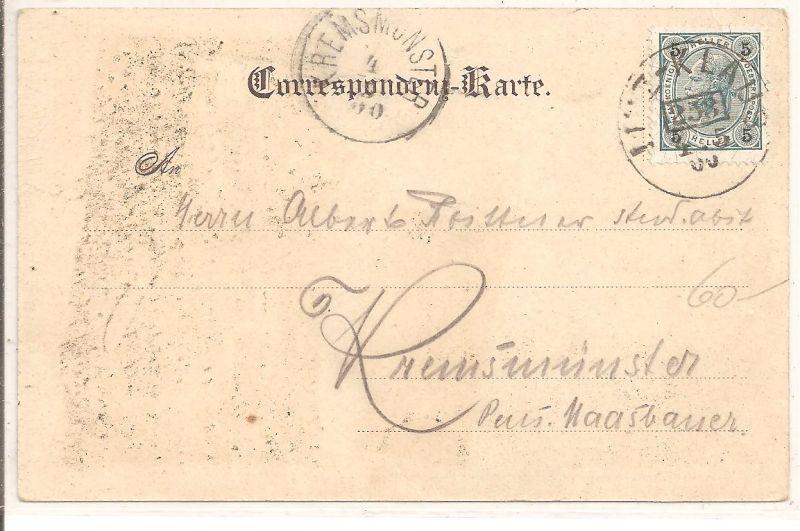 KREMSMÜNSTER
4
00
Correspondenz-Karte.
5 HELLER 5
5 HELLER 5
00
An
Herrn Albert stud. abit
60-
Kremsmünster
Pens. Haasbauer